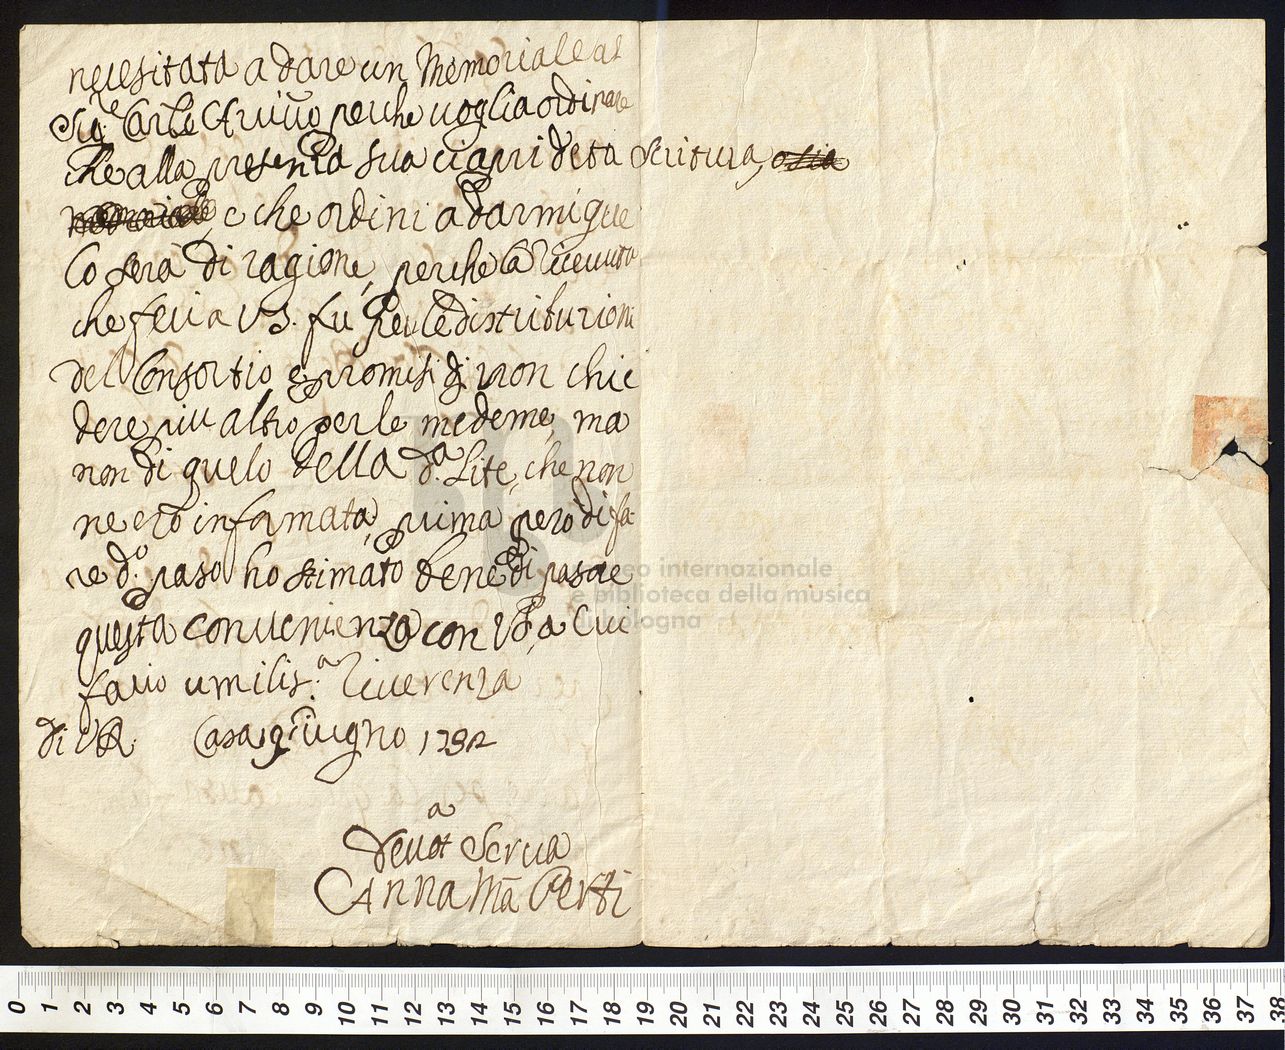 necesitata a dare un Memoriale al
Sig.re perche voglia ordinare
che alla presenza sua ci apri deta Scritura, osia
e che ordini a darmi que
lo sera di ragione, perche la riceuuta
che feci a VS. fu per le distribuzioni
del Consortio e promisi di non chie
dere piu altro per le medeme, ma
non di quelo della d.a Lite, che non
ne ero informata, prima pero di fa
re d.o paso ho stimato bene di pasare
questa conuenienza con VS, a Cui
facio umilis.a riuerenza
di VS. Casa giugno
deuot.a Serua
Anna Ma Perti
museo internazionale
e biblioteca della musica
di bologna
0 1 2 3 4 5 6 7 8 9 10 11 12 13 14 15 16 17 18 19 20 21 22 23 24 25 26 27 28 29 30 31 32 33 34 35 36 37 38